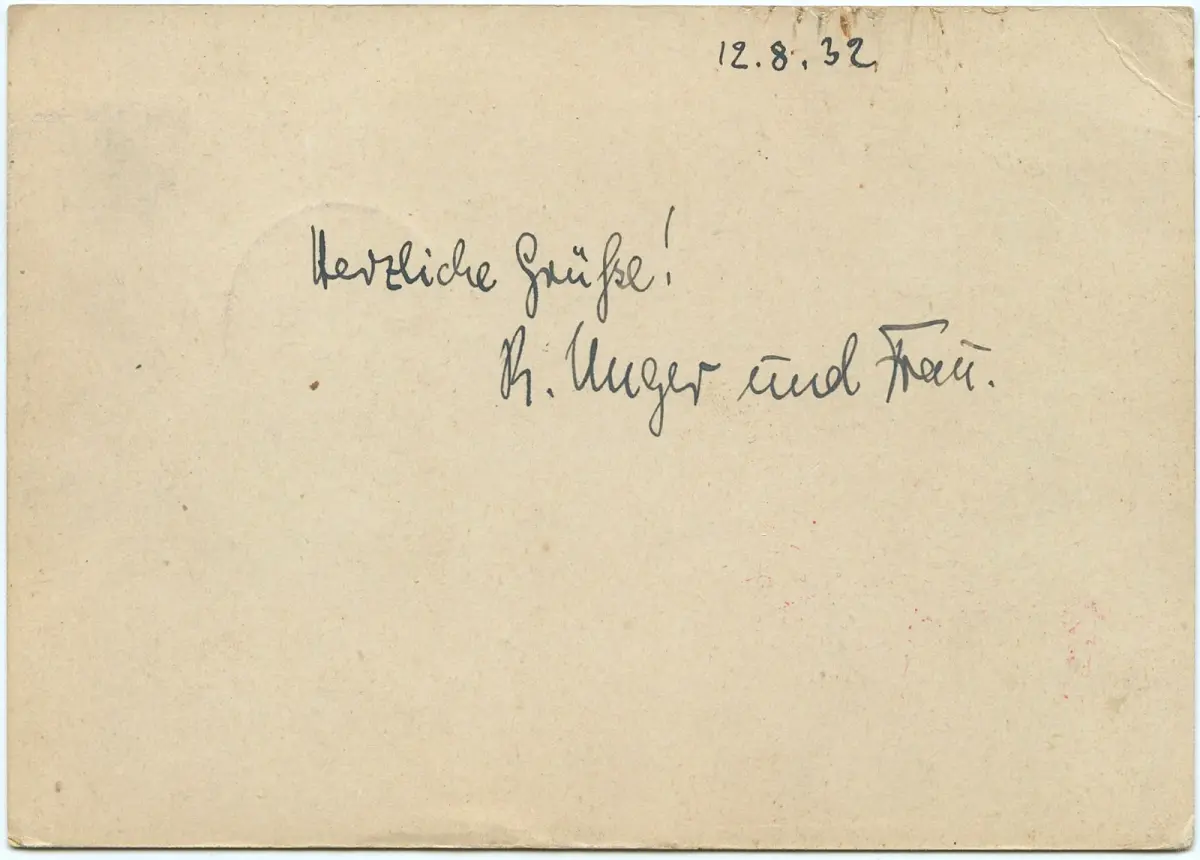 12.8.32
Herzliche Grüße!
R. Unger und Frau.